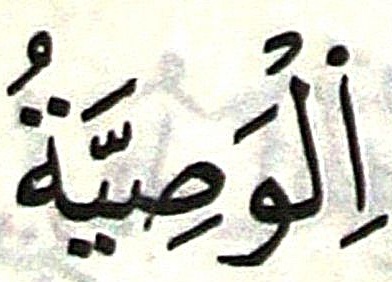 اِلْوَصِيَّةُ